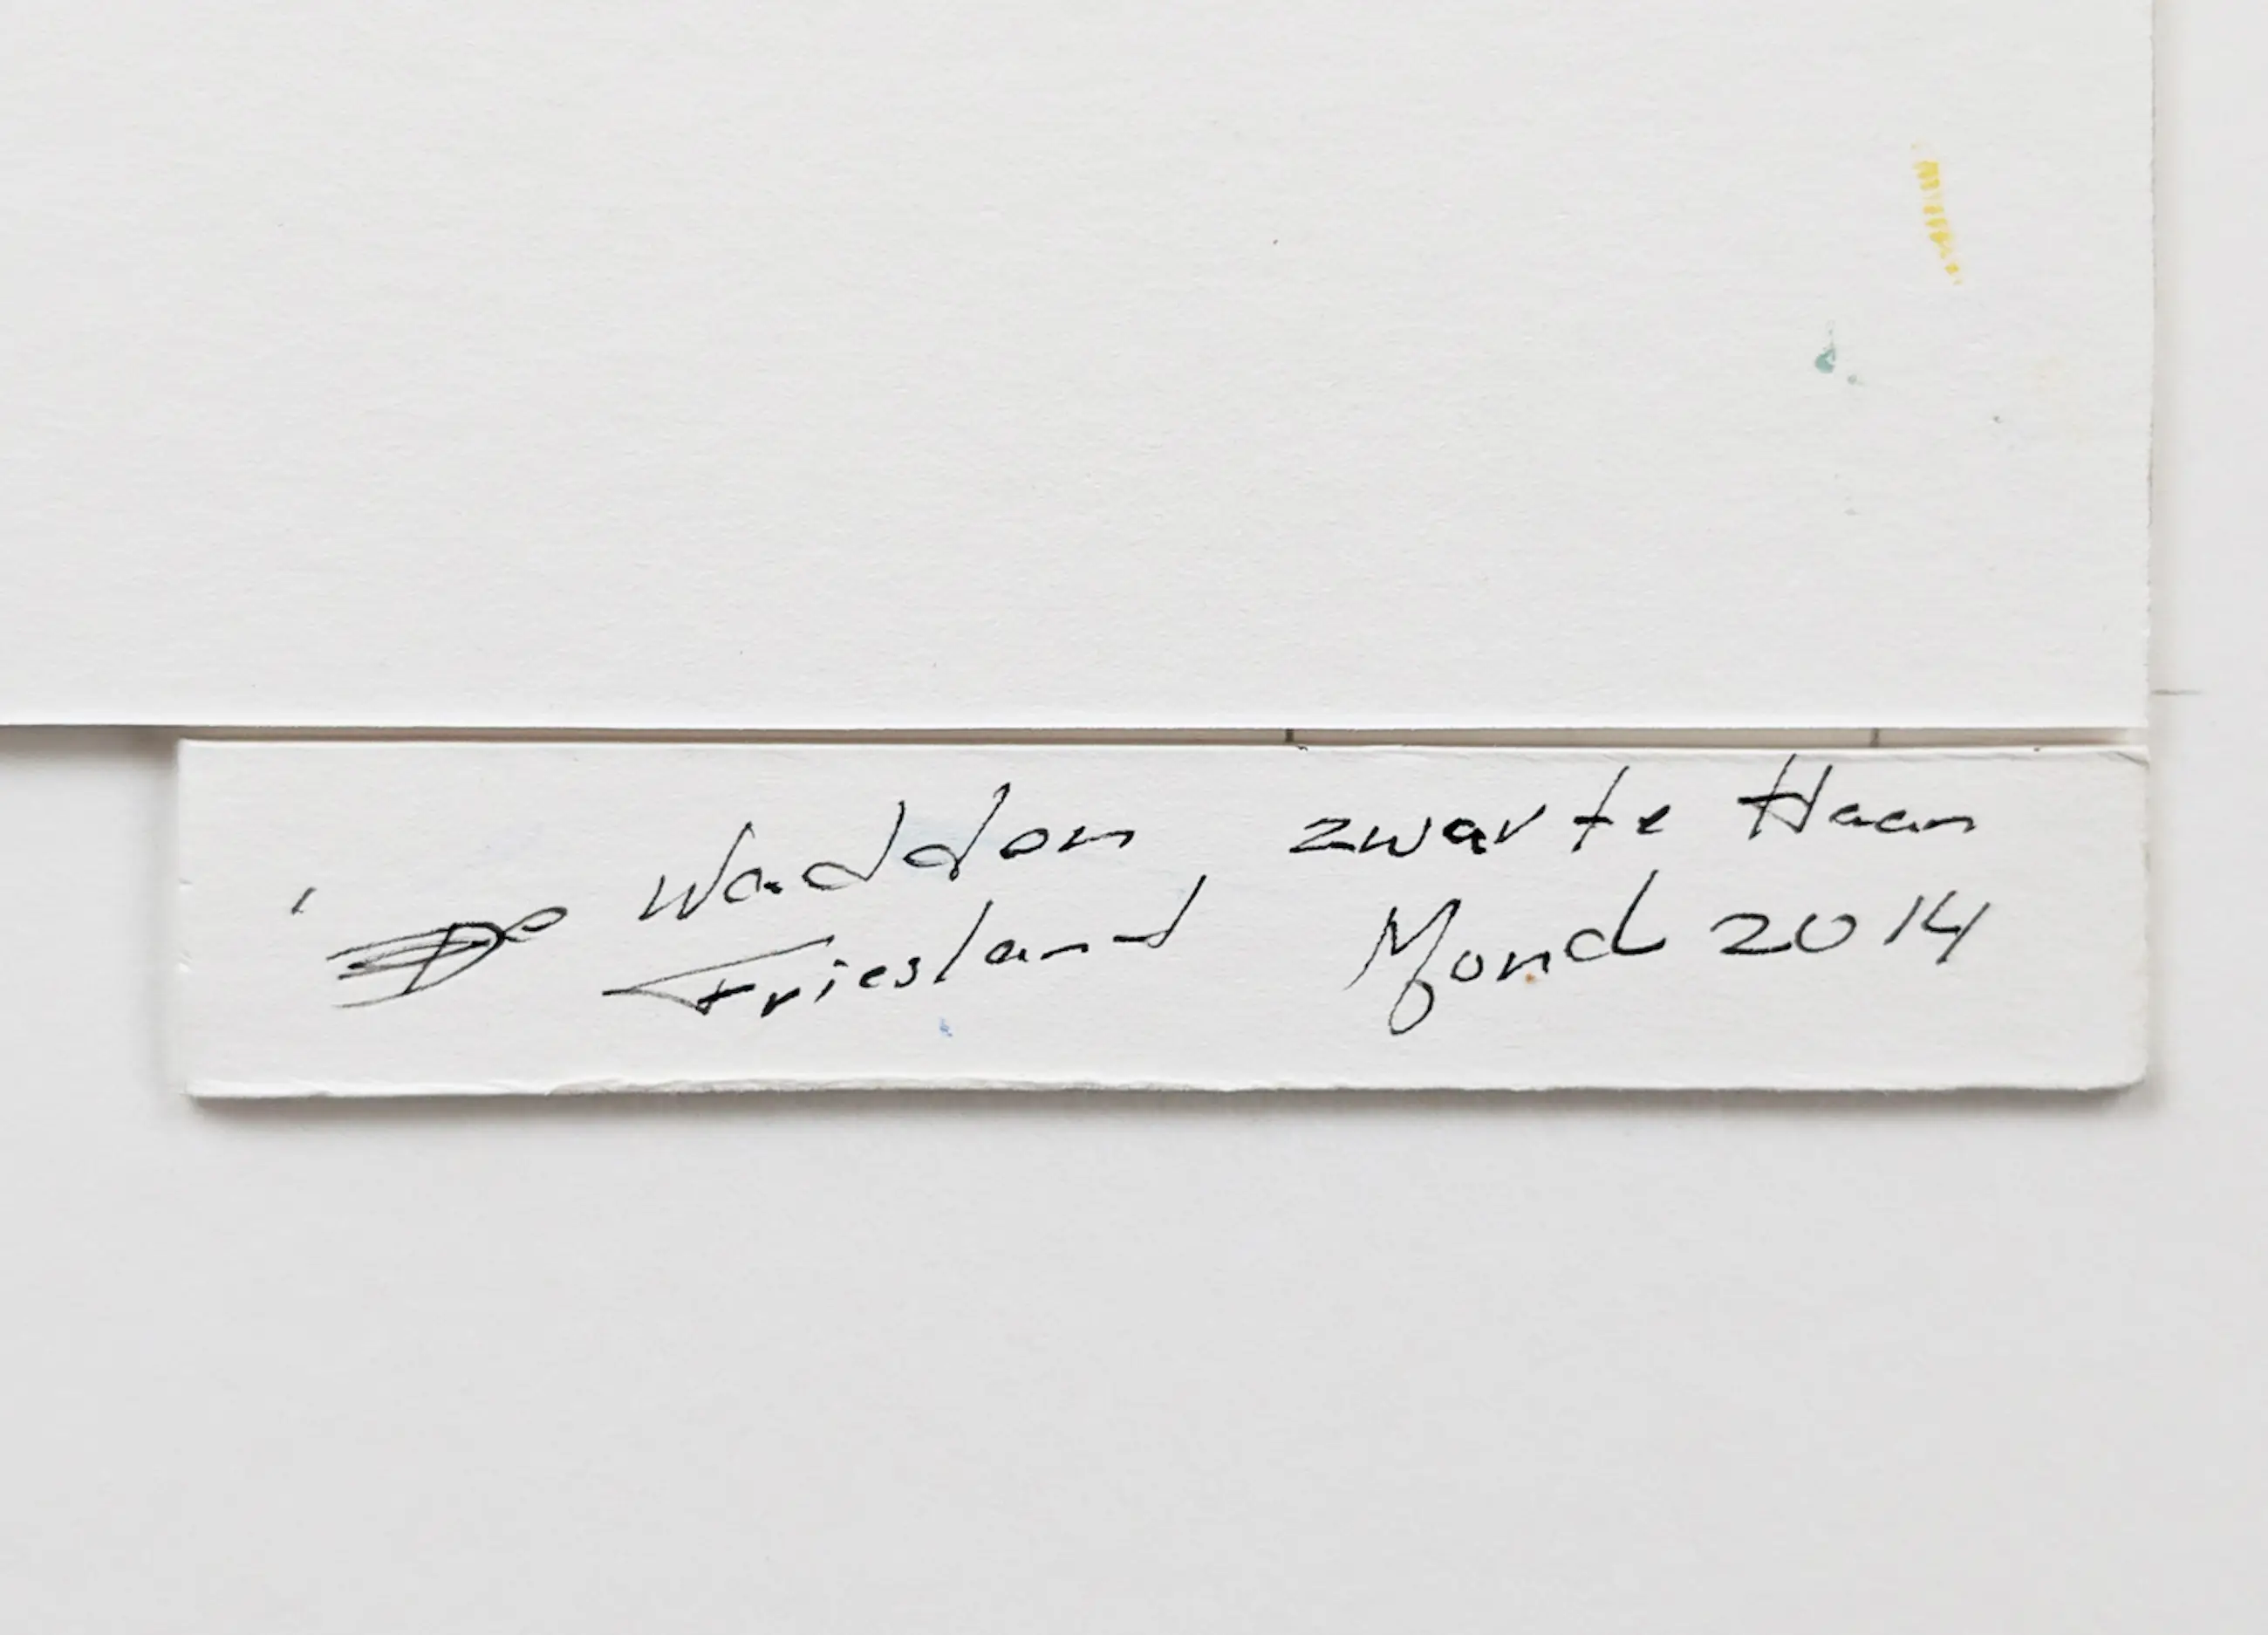 Wadden zwarte Haan
Friesland Mond 2014